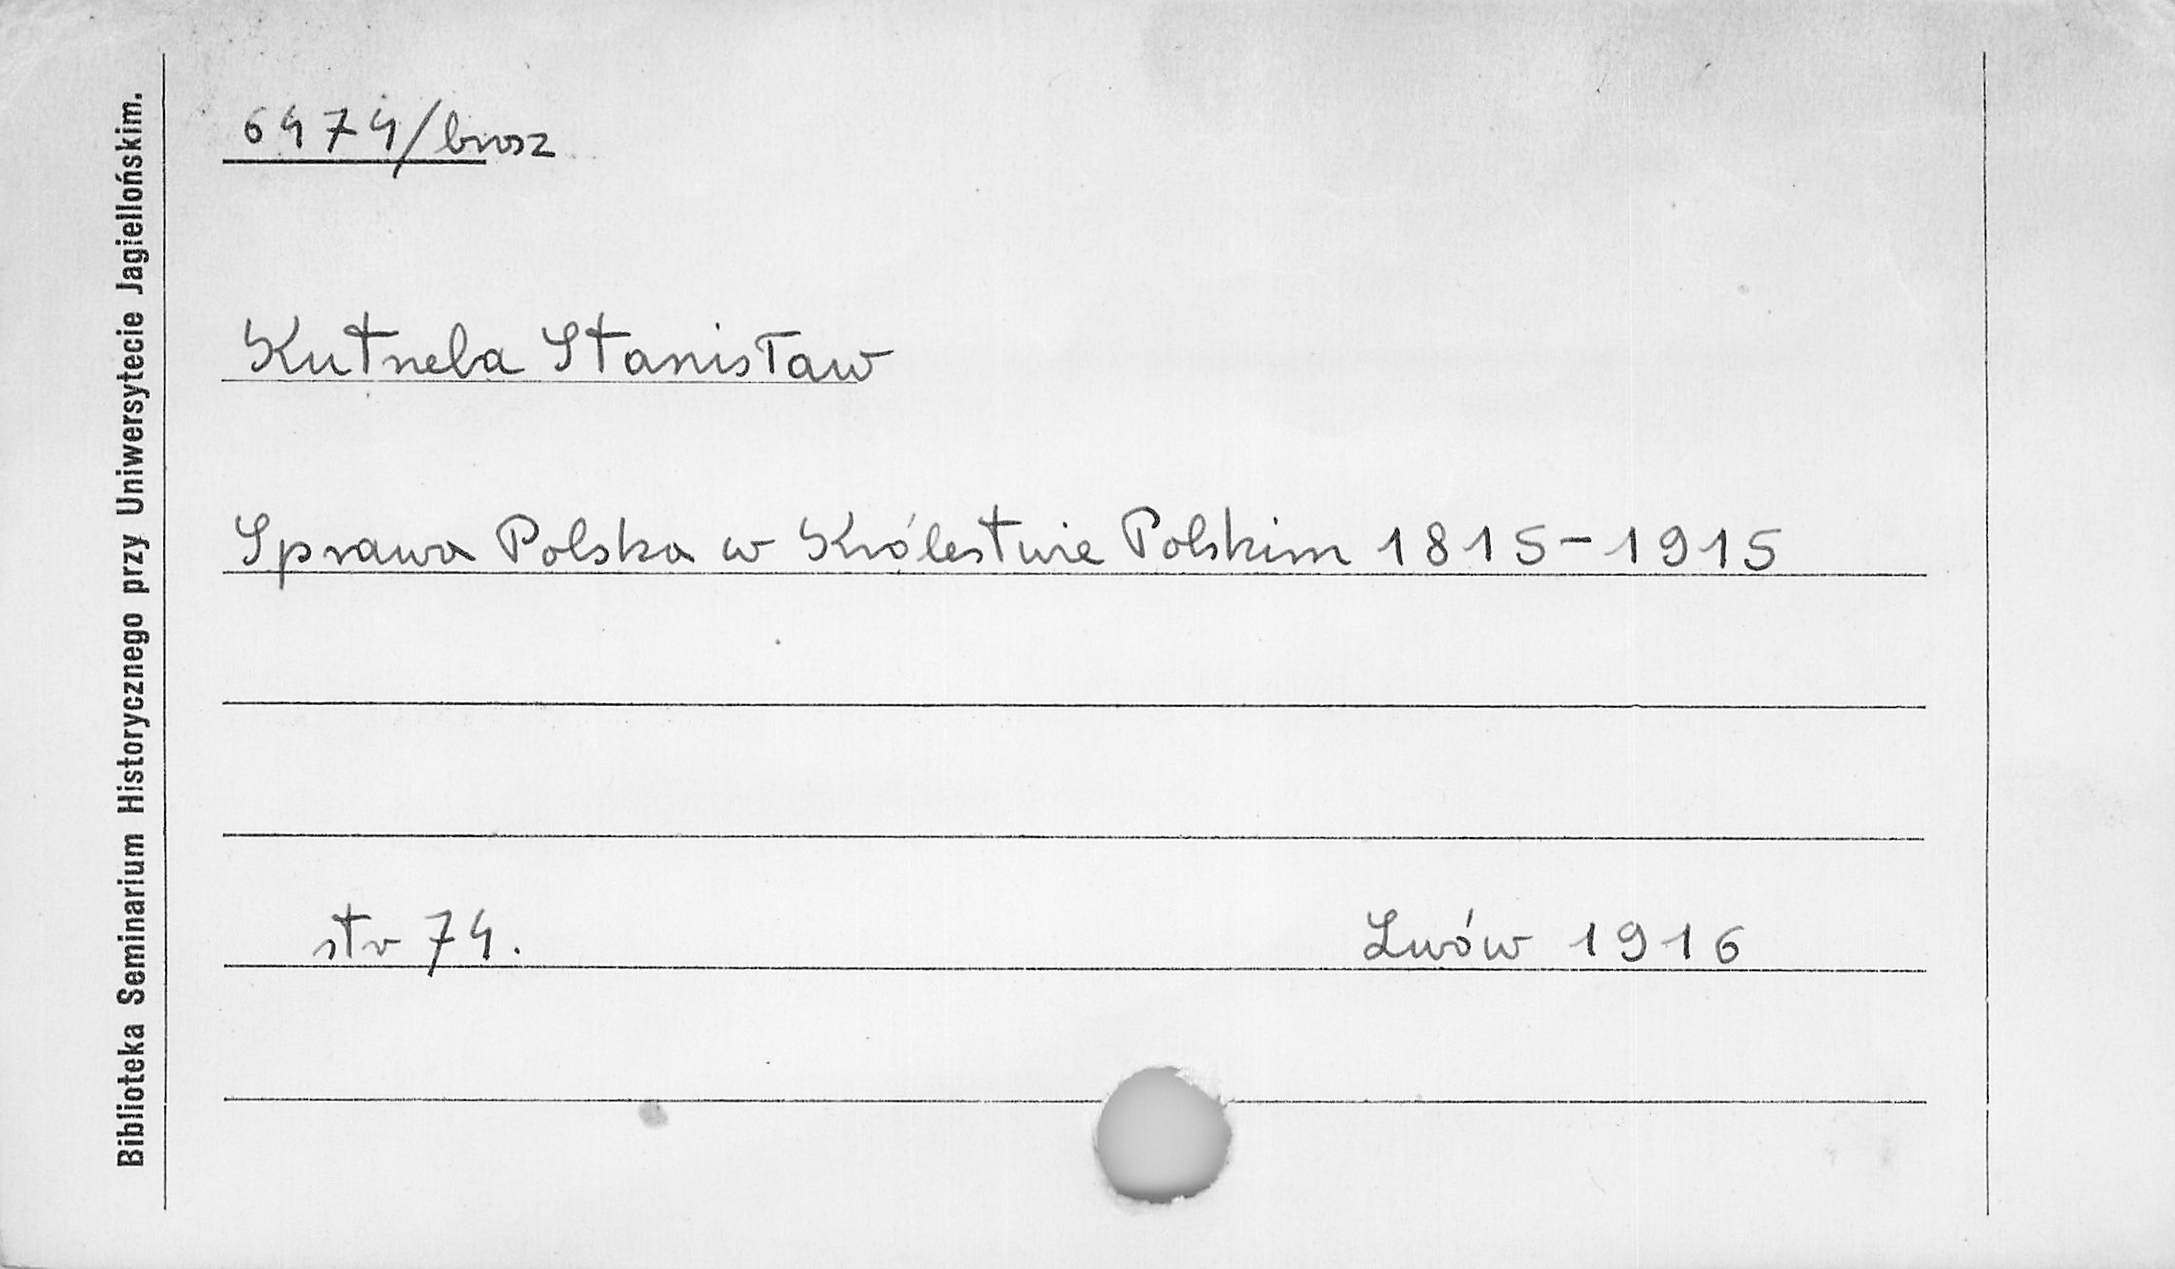 Biblioteka Seminarium Historycznego przy Uniwersytecie Jagiellońskim.
6474/brosz
Kutrzeba Stanisław
Sprawa Polska w Królestwie Polskim 1815-1915
str 74.
Lwów 1916